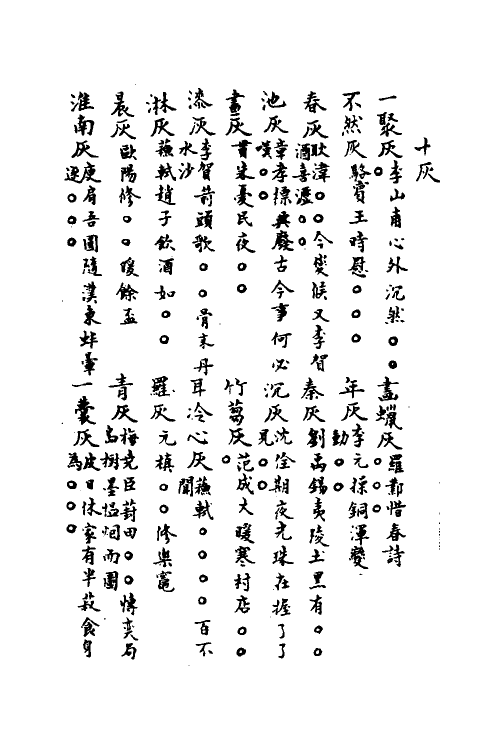 十灰
一聚灰李山甫心外沉然○○○
畫蠟灰羅鄴惜春詩○○○
不然灰駱賓王時慰○○○
年灰李元操銅渾變○○動
春灰耿湋○○今變候又李賀酒喜瀝○○
秦灰劉禹錫夷陵土黑有○○
池灰章孝標興廢古今事何必嘆○○
沉灰沈佺期夜光珠在握了了見○○
畫灰貫朱憂民夜○○
竹蒿灰范成大暖寒村店○○○
漆灰李賀箭頭歌○○骨末丹水沙
耳冷心灰蘇軾○○○○百不聞
淋灰蘇軾趙子飲酒如○○
羅灰元稹○○修樂竈
晨灰歐陽修○○暖餘盃
青灰梅堯臣葑田○○博奕局烏樹墨恬烟雨圖
淮南灰庾肩吾圖隨漢東蚌暈逐○○○
一囊灰皮日休家有半菽食身為○○○